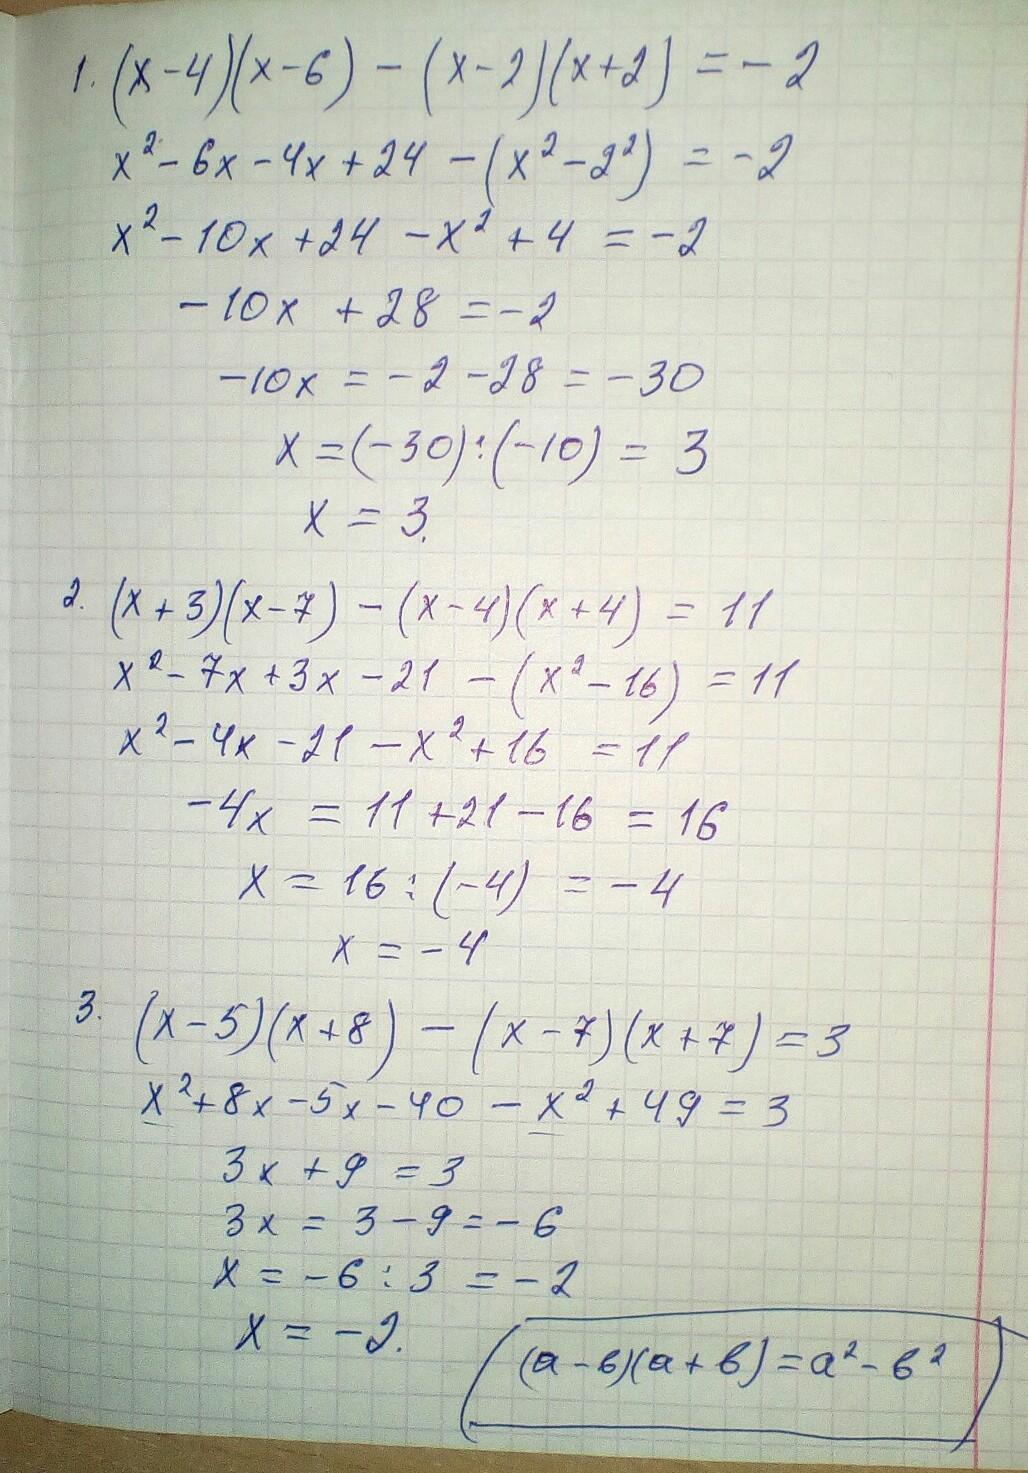 1. (x-4)(x-6) - (x-2)(x+2) = -2
x² - 6x - 4x + 24 - (x² - 2²) = -2
x² - 10x + 24 - x² + 4 = -2
-10x + 28 = -2
-10x = -2 - 28 = -30
x = (-30) : (-10) = 3
x = 3.
2. (x+3)(x-7) - (x-4)(x+4) = 11
x² - 7x + 3x - 21 - (x² - 16) = 11
x² - 4x - 21 - x² + 16 = 11
-4x = 11 + 21 - 16 = 16
x = 16 : (-4) = -4
x = -4
3. (x-5)(x+8) - (x-7)(x+7) = 3
x² + 8x - 5x - 40 - x² + 49 = 3
3x + 9 = 3
3x = 3 - 9 = -6
x = -6 : 3 = -2
x = -2.
(а-в)(а+в) = а² - в²